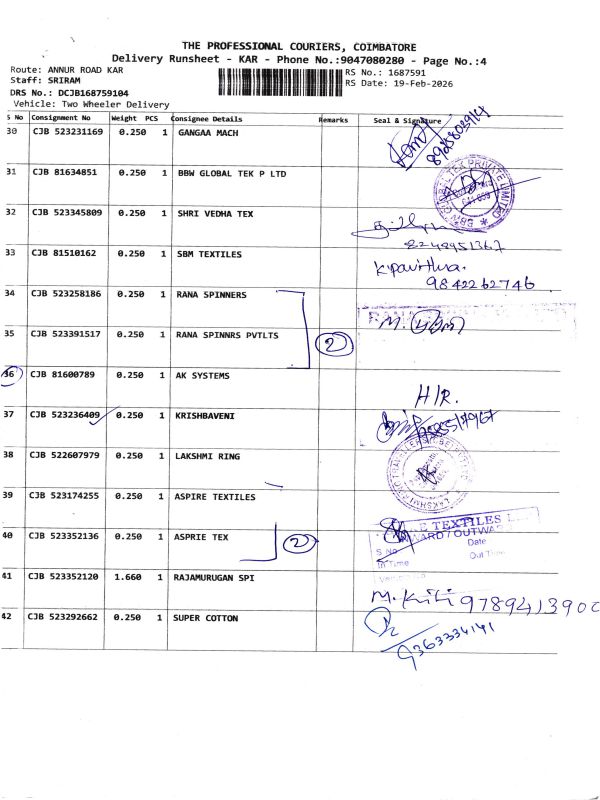 THE PROFESSIONAL COURIERS, COIMBATORE
Delivery Runsheet - KAR - Phone No.:9047080280 - Page No.:4
Route: ANNUR ROAD KAR
RS No.: 1687591
Staff: SRIRAM
RS Date: 19-Feb-2026
DRS No.: DCJB168759104
Vehicle: Two Wheeler Delivery
S No Consignment No Weight PCS Consignee Details Remarks Seal & Signature
30 CJB 523231169 0.250 1 GANGAA MACH
31 CJB 81634851 0.250 1 BBW GLOBAL TEK P LTD
32 CJB 523345809 0.250 1 SHRI VEDHA TEX
8248951367
33 CJB 81510162 0.250 1 SBM TEXTILES K.Pavithra.
9842262746
34 CJB 523258186 0.250 1 RANA SPINNERS
35 CJB 523391517 0.250 1 RANA SPINNRS PVTLTS 2
36 CJB 81600789 0.250 1 AK SYSTEMS H/R.
37 CJB 523236409 0.250 1 KRISHBAVENI
38 CJB 522607979 0.250 1 LAKSHMI RING
39 CJB 523174255 0.250 1 ASPIRE TEXTILES
40 CJB 523352136 0.250 1 ASPRIE TEX 2
TEXTILES
WARD / OUTWAR
S No Date
In Time Out Time
41 CJB 523352120 1.660 1 RAJAMURUGAN SPI
M. Kili 9789413900
42 CJB 523292662 0.250 1 SUPER COTTON
9363334141